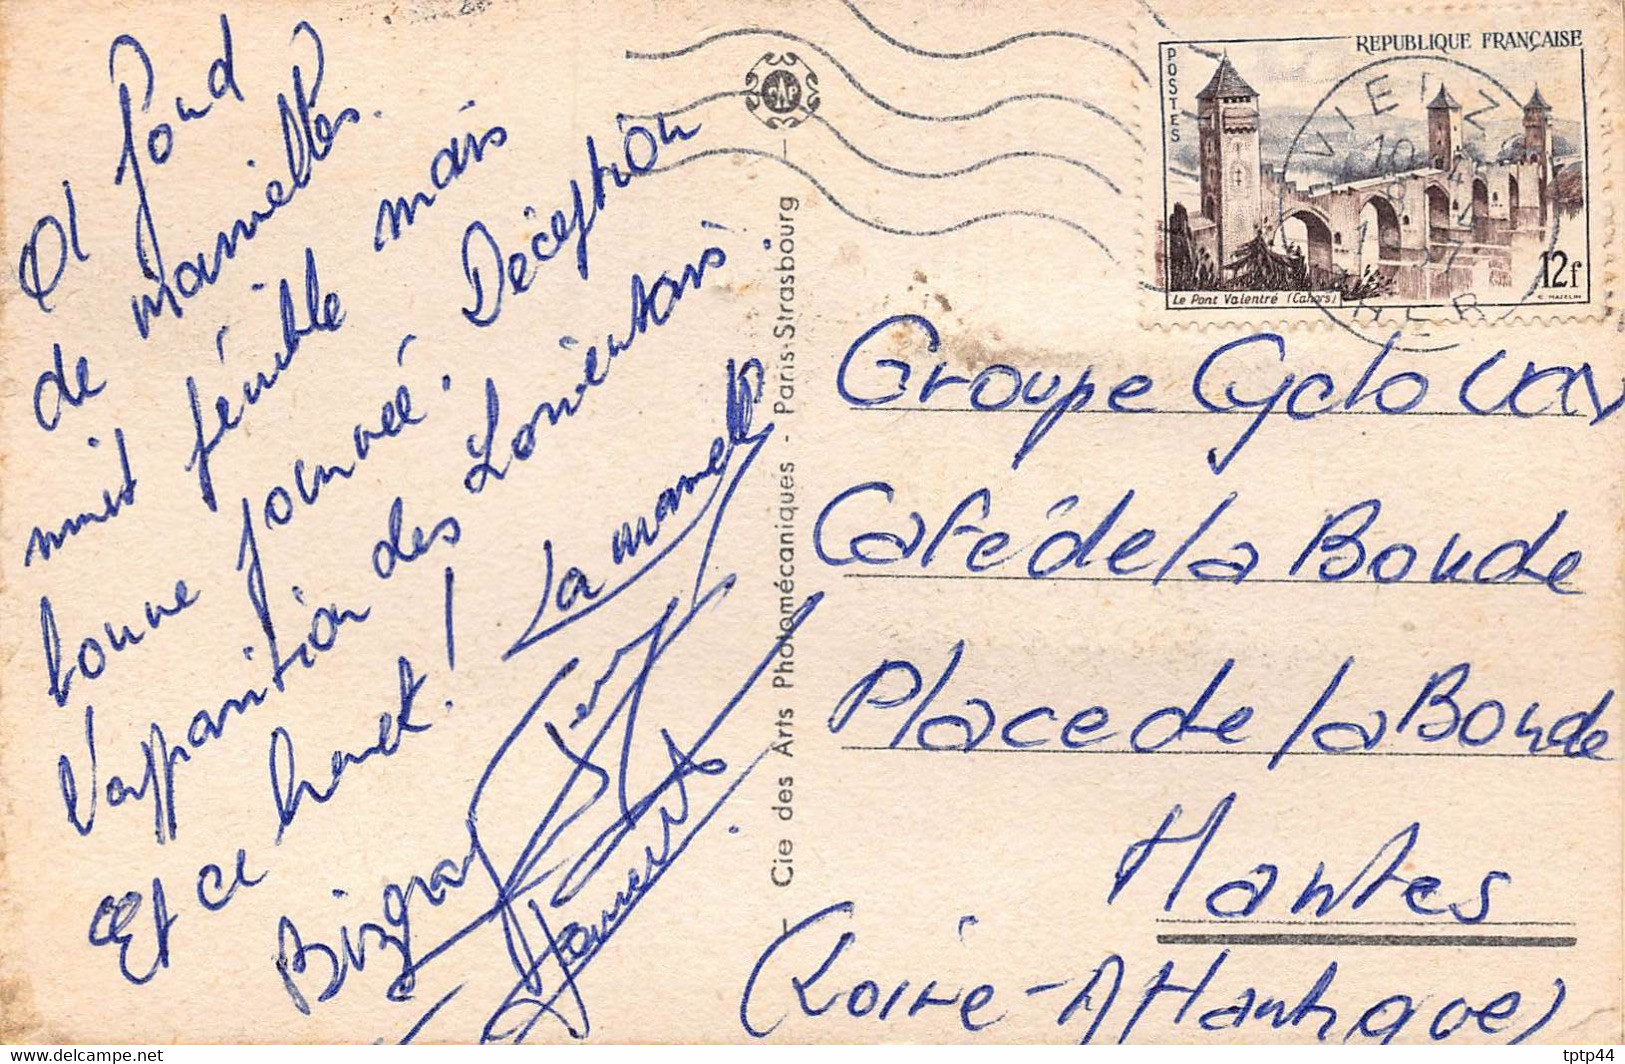 A fond
de manivelles.
nuit pénible mais
bonne journée. Déception
l'apparition des Lorientais.
Et ce hariet!
La manette
Bizgra
Cie des Arts Photomécaniques - Paris-Strasbourg
CAP
REPUBLIQUE FRANÇAISE
POSTES
Le Pont Valentré (Cahors)
12f
VIERZON
CHER
Groupe Cyclo
Café de la Bonde
Place de la Bonde
Nantes
(Loire-Atlantique)
tptp44